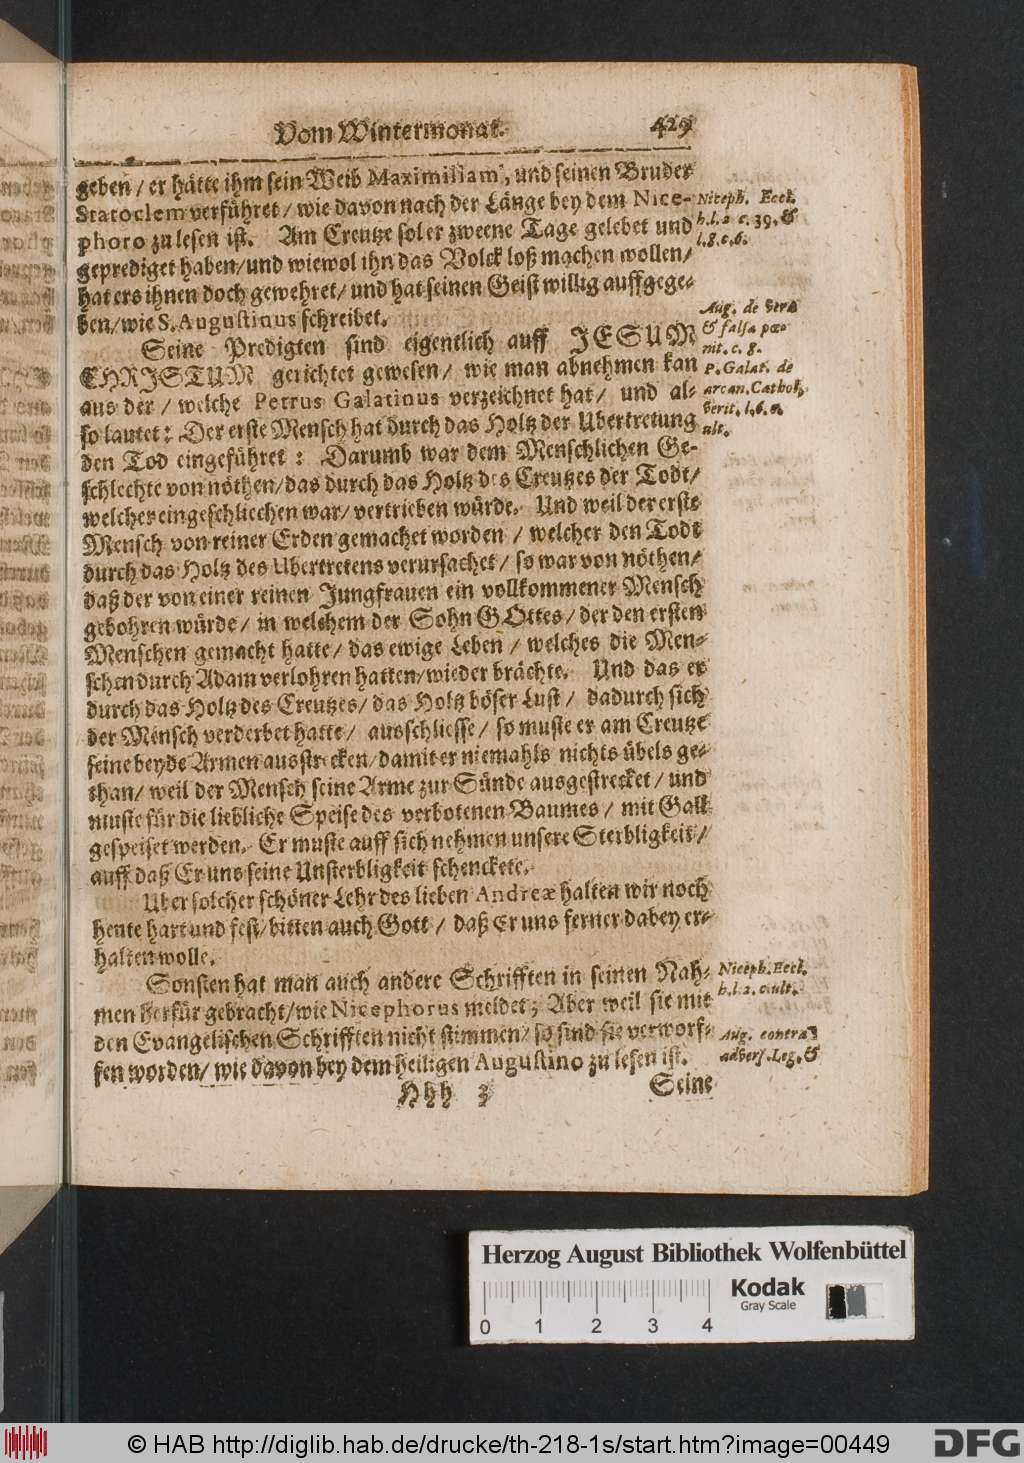 Vom Wintermonat. 429
geben / er hätte ihm sein Weib Maximillam, und seinen Bruder
Statoclem verführet / wie davon nach der Länge bey dem Nice-
phoro zu lesen ist. Am Creutze sol er zweene Tage gelebet und
geprediget haben/und wiewol ihn das Volck loß machen wollen/
hat ers ihnen doch gewehret/ und hat seinen Geist willig auffgege-
ben/wie S. Augustinus schreibet.
Niceph. Eccl.
h. l. 2 c. 39. &
l. 8. c. 6.
Seine Predigten sind eigentlich auff JESUM
CHRISTUM gerichtet gewesen/ wie man abnehmen kan
aus der / welche Petrus Galatinus verzeichnet hat/ und al-
so lautet: Der erste Mensch hat durch das Holtz der Ubertretung
den Tod eingeführet: Darumb war dem Menschlichen Ge-
schlechte von nöthen/das durch das Holtz des Creutzes der Todt/
welcher eingeschliechen war/ vertrieben würde. Und weil der erste
Mensch von reiner Erden gemachet worden / welcher den Todt
durch das Holtz des Ubertretens verursachet / so war von nöthen/
daß der von einer reinen Jungfrauen ein vollkommener Mensch
gebohren würde/ in welchem der Sohn GOttes / der den ersten
Menschen gemacht hatte/ das ewige Leben / welches die Men-
schen durch Adam verlohren hatten/wieder brächte. Und das er
durch das Holtz des Creutzes / das Holtz böser Lust / dadurch sich
der Mensch verderbet hatte / ausschliesse / so muste er am Creutze
seine beyde Armen ausstrecken/damit er niemahls nichts übels ge-
than/ weil der Mensch seine Arme zur Sünde ausgestrecket / und
muste für die liebliche Speise des verbotenen Baumes / mit Gall
gespeiset werden. Er muste auff sich nehmen unsere Sterbligkeit/
auff daß Er uns seine Unsterbligkeit schenckete.
Aug. de vera
& falsa pœ-
nit. c. 8.
P. Galat. de
arcan. Cathol.
verit. l. 6. c.
ult.
Uber solcher schöner Lehr des lieben Andreæ halten wir noch
heute hart und fest/bitten auch Gott / daß Er uns ferner dabey er-
halten wolle.
Sonsten hat man auch andere Schrifften in seinen Nah-
men herfür gebracht/wie Nicephorus meldet; Aber weil sie mit
den Evangelischen Schrifften nicht stimmen/ so sind sie verworf-
fen worden/ wie davon bey dem heiligen Augustino zu lesen ist.
Niceph. Eccl.
h. l. 2. c. ult.
Aug. contra
advers. Leg. &
Hhh 3 Seine
Herzog August Bibliothek Wolfenbüttel
0 1 2 3 4
Kodak
Gray Scale
© HAB http://diglib.hab.de/drucke/th-218-1s/start.htm?image=00449
DFG